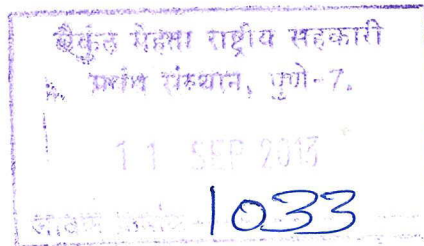 बैकुंठ मेहता राष्ट्रीय सहकारी
प्रबंध संस्थान, पुणे-7.
11 SEP 2013
आवक क्रमांक 1033